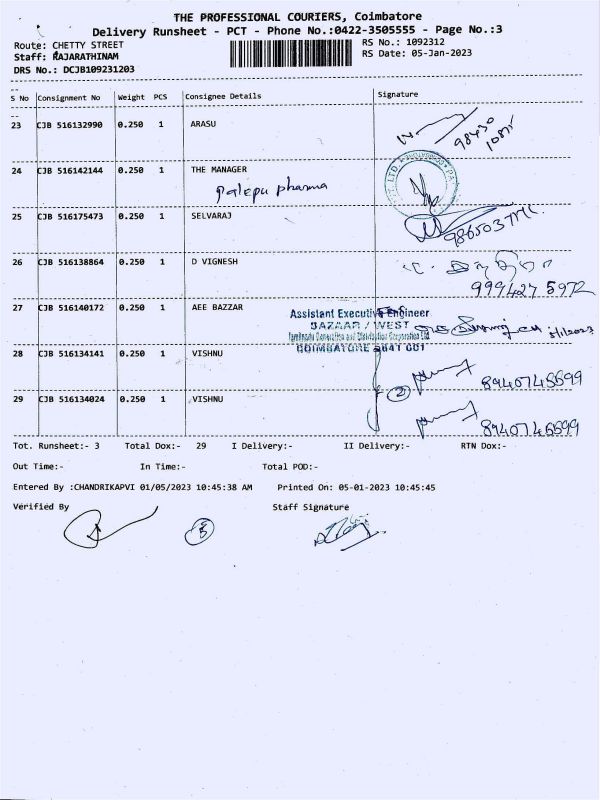 THE PROFESSIONAL COURIERS, Coimbatore
Delivery Runsheet - PCT - Phone No.:0422-3505555 - Page No.:3
Route: CHETTY STREET
RS No.: 1092312
Staff: RAJARATHINAM
RS Date: 05-Jan-2023
DRS No.: DCJB109231203
S No Consignment No Weight PCS Consignee Details Signature
23 CJB 516132990 0.250 1 ARASU
98430
24 CJB 516142144 0.250 1 THE MANAGER
palepu pharma
25 CJB 516175473 0.250 1 SELVARAJ
26 CJB 516138864 0.250 1 D VIGNESH
999427 5972
27 CJB 516140172 0.250 1 AEE BAZZAR
Assistant Executive Engineer
BAZAAR / WEST
Tamilnadu Generation and Distribution Corporation Ltd
COIMBATORE 641 001
5/1/2023
28 CJB 516134141 0.250 1 VISHNU
2
8940745699
29 CJB 516134024 0.250 1 VISHNU
8940745699
Tot. Runsheet:- 3 Total Dox:- 29 I Delivery:- II Delivery:- RTN Dox:-
Out Time:- In Time:- Total POD:-
Entered By :CHANDRIKAPVI 01/05/2023 10:45:38 AM Printed On: 05-01-2023 10:45:45
Verified By Staff Signature